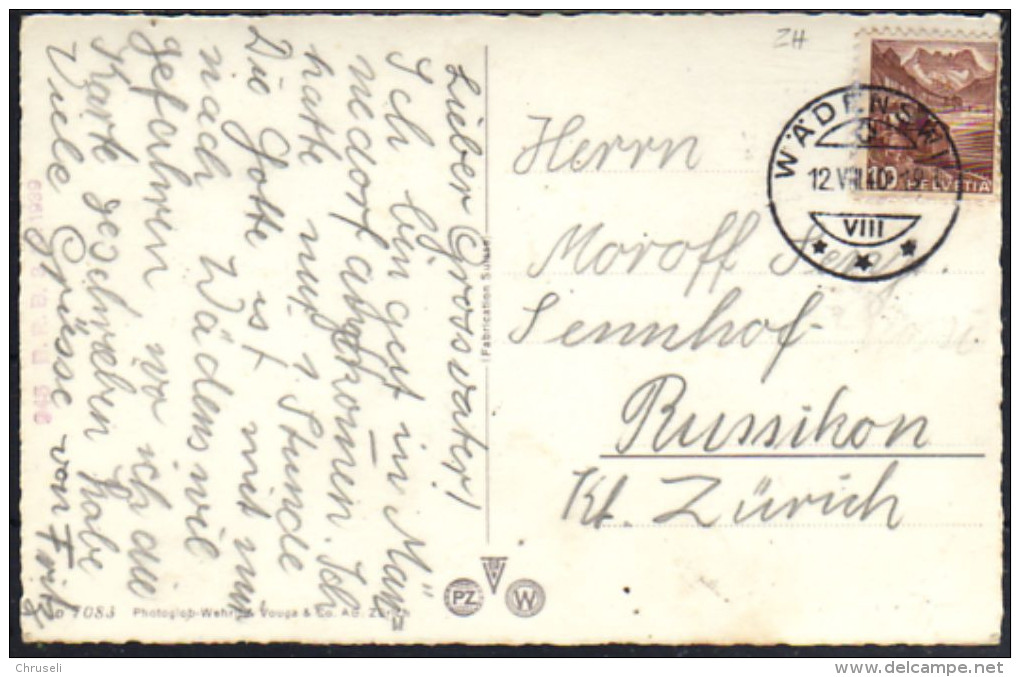 Lieber Grossvater!
Ich bin gut in Män
nedorf angekomen. Ich
hatte nur 1 Stunde
Die Gotte ist mit mir
nach Wädenswil
gefahren wo ich die
Karte geschrieben habe
Viele Grüsse von Fritz
ZH
Herrn
Moroff
Sennhof
Russikon
Kt. Zürich
WÄDENSWI
12.VIII.40
VIII
10 HELVETIA
(Fabrication Suisse)
PZ W
7083 Photoglob-Wehrli & Vouga & Co. AG. Zürich
Chruseli
http://www.delcampe.net